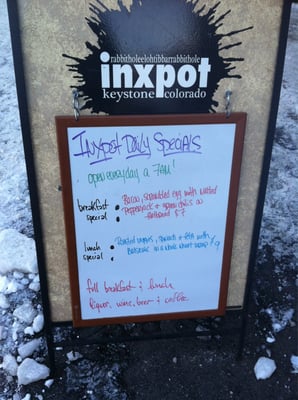 rabbitholeelohtibbarrabbithole
inxpot
keystone colorado
Inxpot Daily Specials
Open everyday @ 7AM!
breakfast special
: Bacon, scrambled egg with melted
pepperjack + green chilis on
flatbread $7
lunch special
: Roasted veggies, spinach + feta with
balsamic in a whole wheat wrap $9
full breakfast & lunch
liquor, wine, beer & coffee